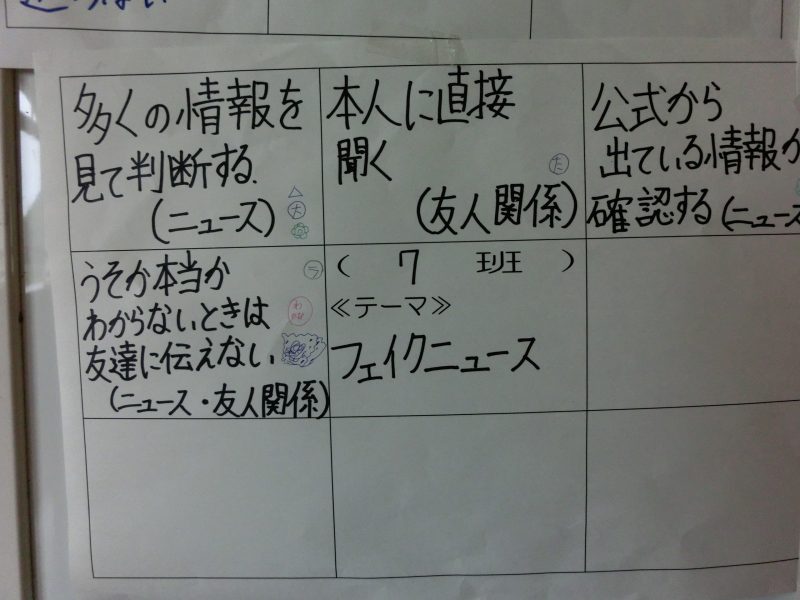 多くの情報を
見て判断する.
(ニュース)
大
本人に直接
聞く
た
(友人関係)
公式から
出ている情報か
確認する(ニュース
うそか本当か
ラ
わからないときは
わ
友達に伝えない.
(ニュース・友人関係)
( 7 班 )
≪テーマ≫
フェイクニュース